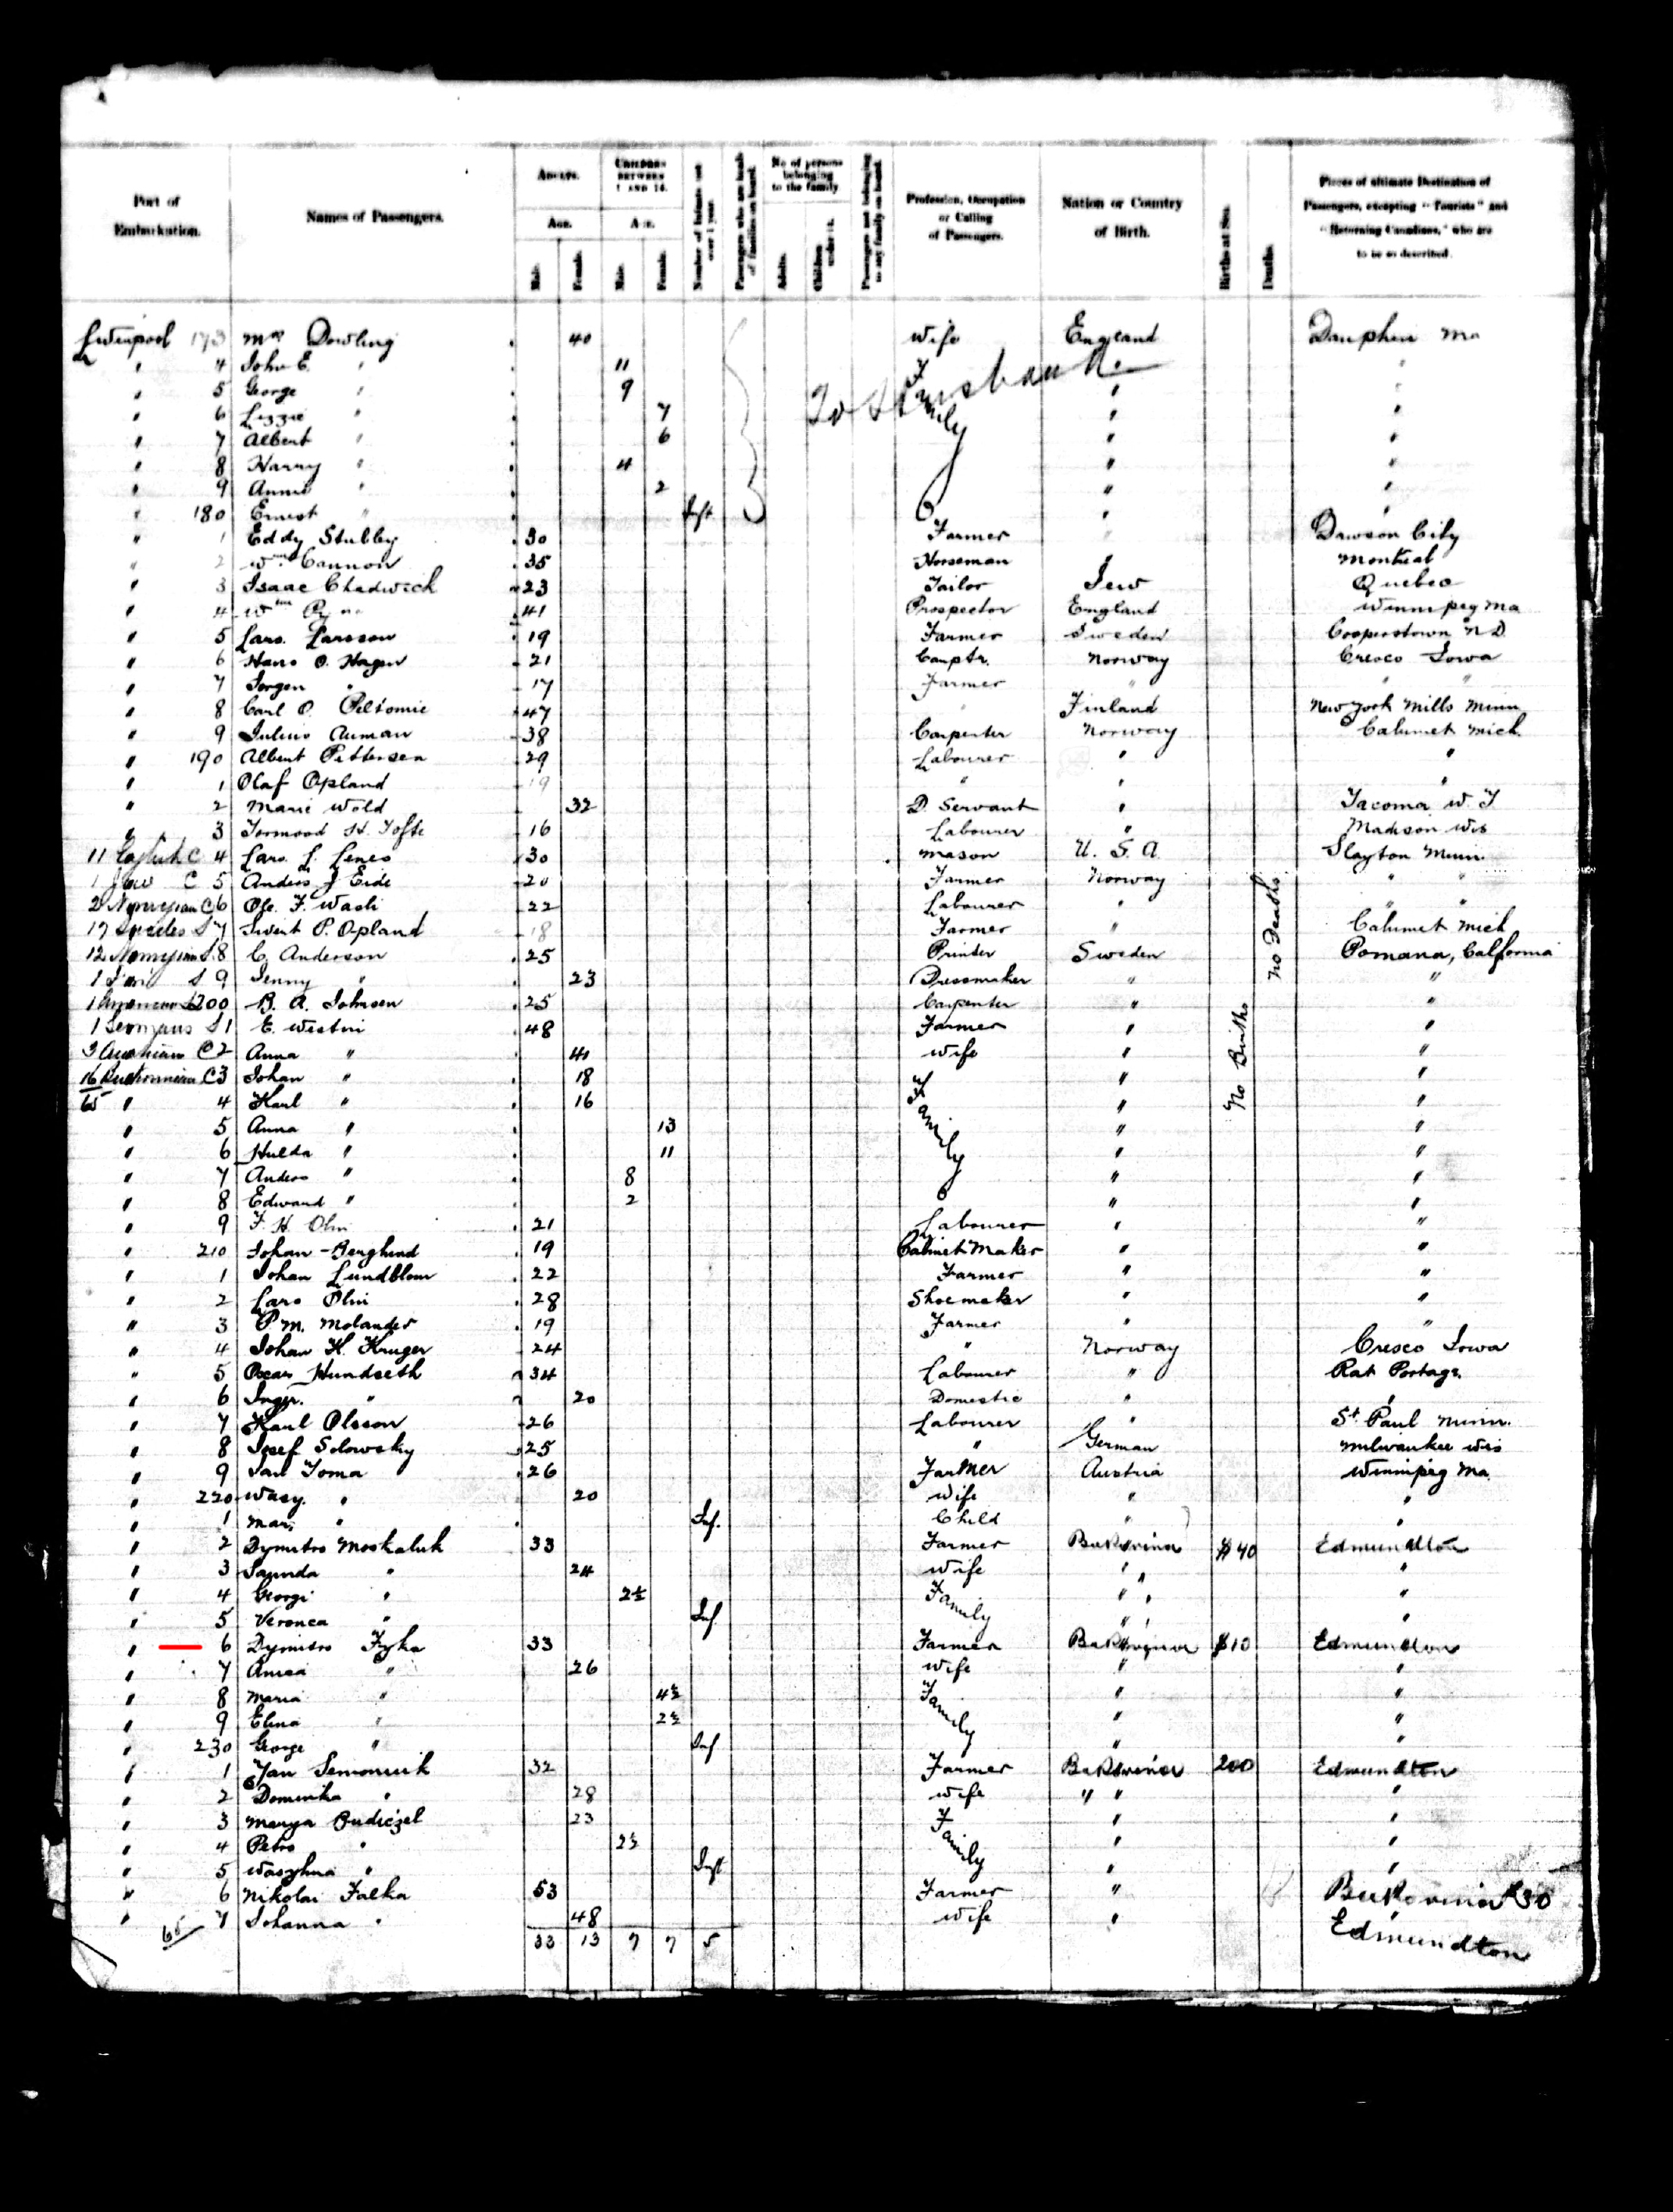 Port of Embarkation. Names of Passengers. ADULTS. Age. Male. Female. CHILDREN BETWEEN 1 AND 14. Age. Male. Female. Number of Infants not over 1 year. Passengers who are heads of families on board. No of persons belonging to the family. Adults. Children under 14. Passengers not belonging to any family on board. Profession, Occupation or Calling of Passengers. Nation or Country of Birth. Births at Sea. Deaths. Places of ultimate Destination of Passengers, excepting "Tourists" and "Returning Canadians," who are to be so described.
Liverpool 173 Mrs Dowling 40 Wife England Dauphin Ma
" 4 John E. " 11 Family " "
To Husband
" 5 George " 9 " "
" 6 Lizzie " 7 " "
" 7 Albert " 6 " "
" 8 Harry " 4 " "
" 9 Annie " 2 " "
" 180 Ernest " Inft " "
" 1 Eddy Stubley 30 Farmer " Dawson City
" 2 Wm. Cannon 35 Horseman Montreal
" 3 Isaac Chadwick 23 Tailor Jew Quebec
" 4 Wm 41 Prospector England Winnipeg Ma
" 5 Lars. Larsson 19 Farmer Sweden Cooperstown N D
" 6 Hans O. Hagen 21 Carptr. Norway Cresco Iowa
" 7 Jorgen " 17 Farmer " " "
" 8 Carl O. 47 " Finland New York Mills Minn
" 9 Julius Auman 38 Carpenter Norway Calumet Mich.
" 190 Albert Pettersen 29 Labourer " "
" 1 Olaf Opland 19 " " "
" 2 Marie Wold 32 D. Servant " Tacoma W. T.
" 3 Tormood H. Tofte 16 Labourer " Madison Wis
11 English C 4 Lars. L. Lenes 30 Mason U. S. A. Slayton Minn.
1 Jew C 5 Anders J Eide 20 Farmer Norway " "
2 Norwegian C 6 Ole. F. 22 Labourer " " "
17 Swedes S 7 Sivert P. Opland 18 Farmer " Calumet Mich
12 Norwegian S. 8 C. Anderson 25 Printer Sweden Pomana, California
1 Finn S 9 Jenny " 23 Dressmaker " "
1 American S 200 B. A. Johnson 25 Carpenter " "
1 Germans S 1 E. Westin 48 Farmer " "
3 Austrians C 2 Anna " 41 Wife " "
16 C 3 Johan " 18 Family " "
65 " 4 Karl " 16 " "
No Births
No Deaths
" 5 Anna " 13 " "
" 6 Hulda " 11 " "
" 7 Anders " 8 " "
" 8 Edward " 2 " "
" 9 F. H. Olin 21 Labourer " "
" 210 Johan Berglund 19 Cabinet Maker " "
" 1 Johan Lundblom 22 Farmer " "
" 2 Lars Olin 28 Shoemaker " "
" 3 P. M. Molander 19 Farmer " "
" 4 Johan K. Kruger 24 " Norway Cresco Iowa
" 5 Oscar Hundseth 34 Labourer " Rat Portage.
" 6 Inger. " 20 Domestic " "
" 7 Karl Olsson 26 Labourer " St. Paul Minn.
" 8 Josef Solowsky 25 " German Milwaukee Wis
" 9 Jan Toma 26 Farmer Austria Winnipeg Ma.
" 220 Wasy. " 20 Wife " "
" 1 Mari " Inf. Child " "
" 2 Dymitro Moskaluk 33 Farmer Bukovina $40 Edmundton
" 3 " 24 Wife " "
" 4 Georgi " 2½ Family " " "
" 5 Veronca " Inf. " " "
" 6 Dymitro Fyka 33 Farmer Bukovina $10 Edmundton
" 7 " 26 Wife " "
" 8 Maria " 4½ Family " "
" 9 Elina " 2½ " "
" 230 George " Inf " "
" 1 Jan Semoniuk 32 Farmer Bukovina 200 Edmundton
" 2 Dominka " 28 Wife " " "
" 3 Marya Budiczel 23 Family " "
" 4 Petro " 2½ " "
" 5 " Inft " "
" 6 Nikolai Falka 53 Farmer " Bukovina $30
" 7 Johanna " 48 Wife " Edmundton
65 33 13 7 7 5